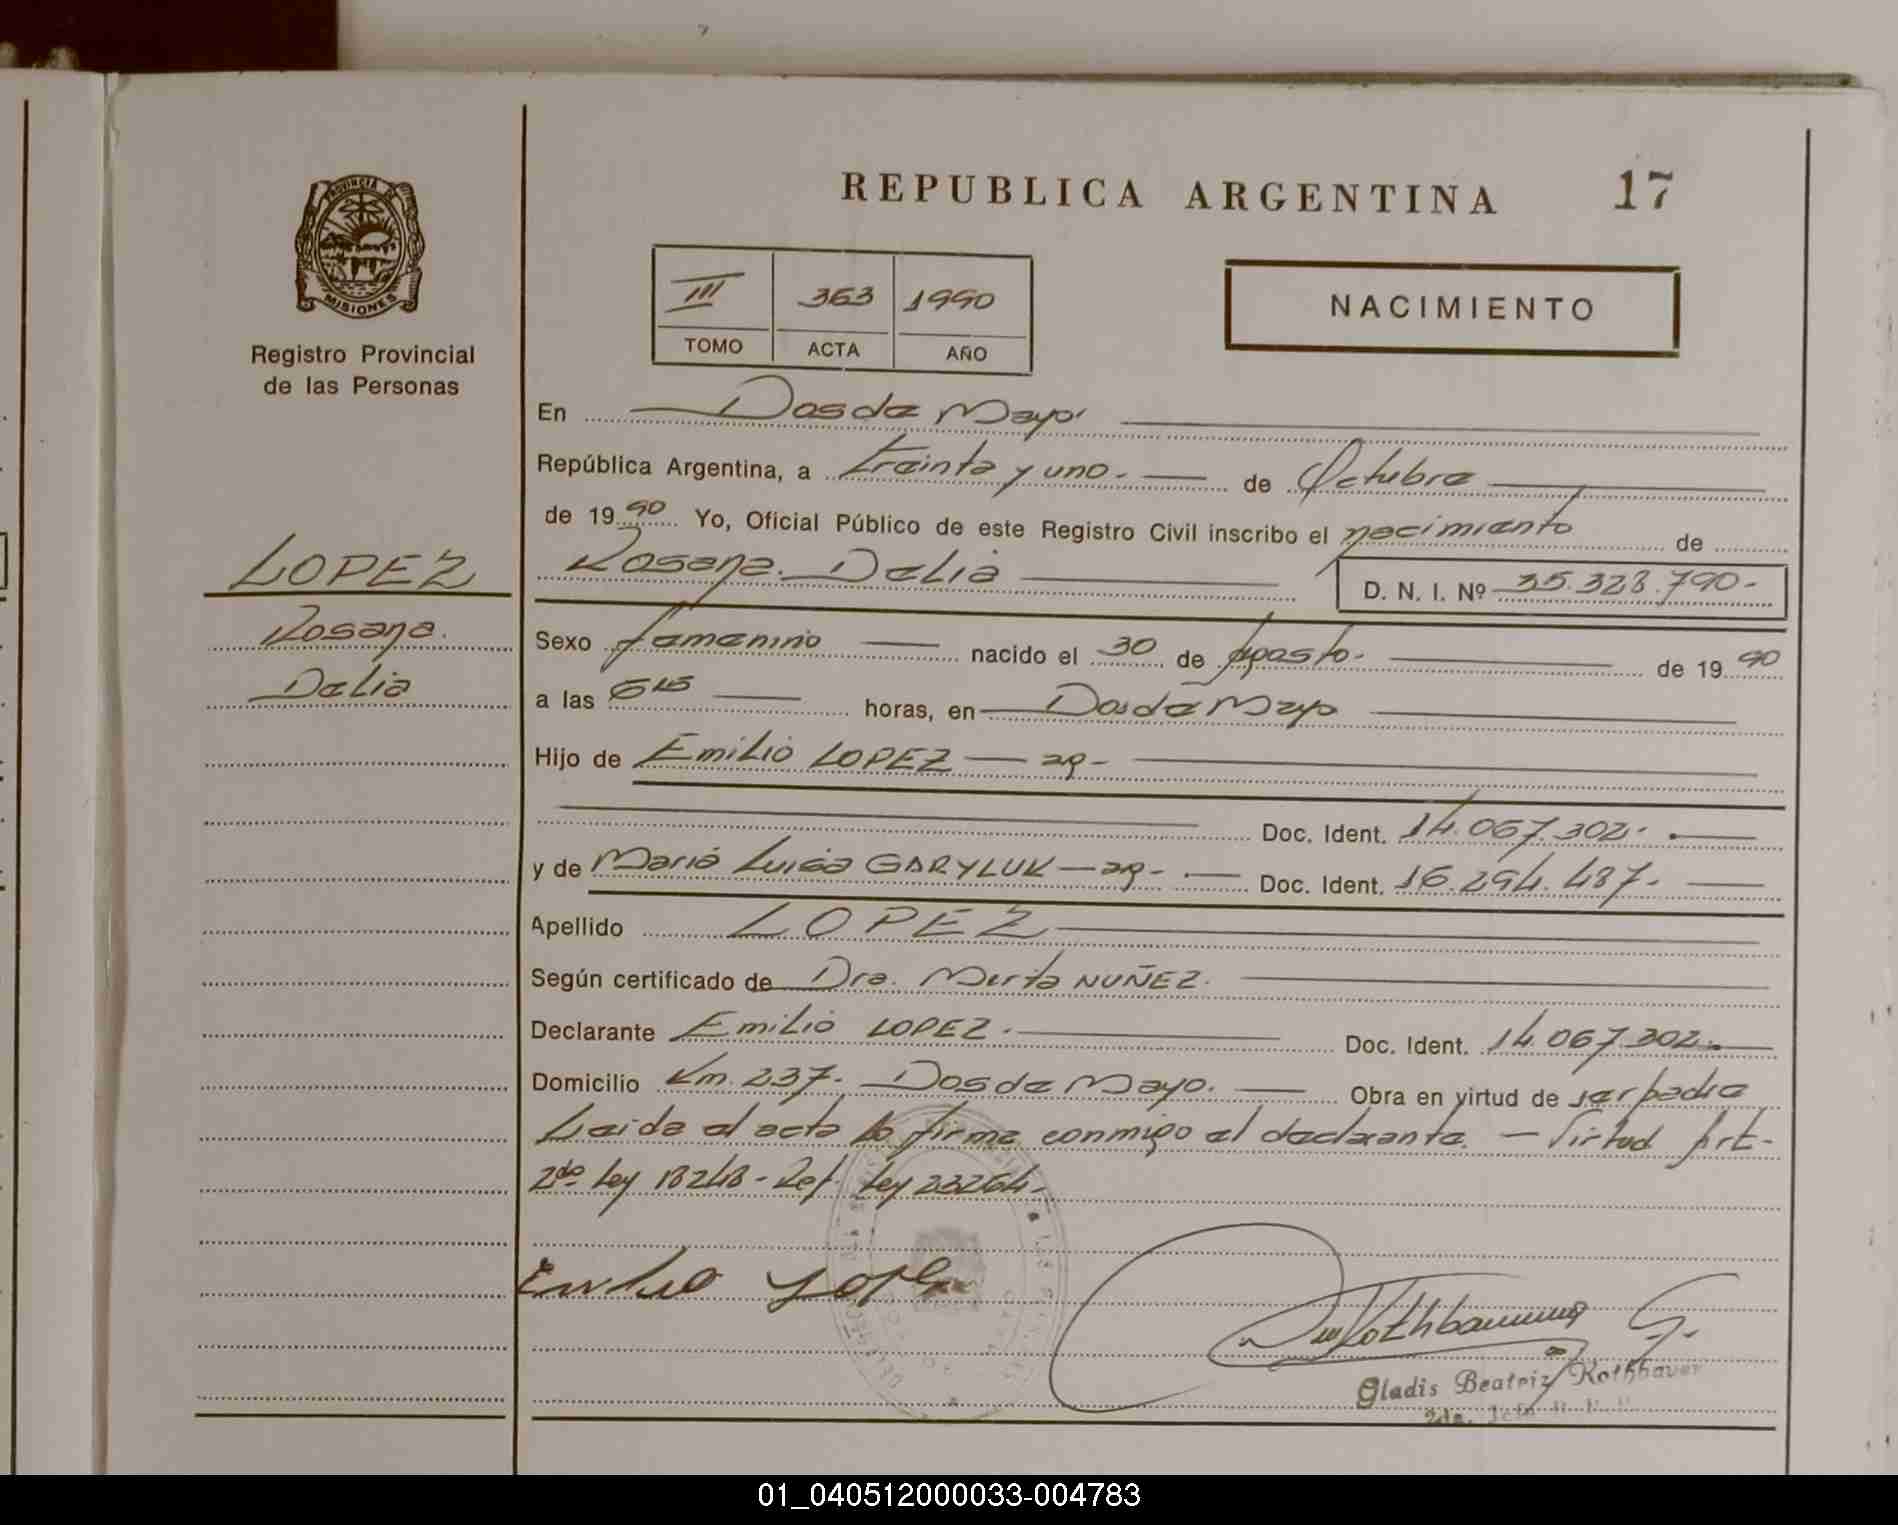 PROVINCIA DE
MISIONES
Registro Provincial
de las Personas
LOPEZ
Rosana
Delia
REPUBLICA ARGENTINA 17
III 363 1990
TOMO ACTA AÑO
NACIMIENTO
En Dos de Mayo
República Argentina, a treinta y uno.- de Octubre
de 1990 Yo, Oficial Público de este Registro Civil inscribo el nacimiento de
Rosana Delia D. N. I. Nº 35.328.790-
Sexo femenino nacido el 30 de Agosto. de 1990
a las 6 15 horas, en Dos de Mayo
Hijo de Emilio LOPEZ - ar -
Doc. Ident. 14.067.302.-
y de María Luisa GARYLUK - ar - Doc. Ident. 16.294.437.-
Apellido LOPEZ
Según certificado de Dra. Mirta NUÑEZ.
Declarante Emilio LOPEZ. Doc. Ident. 14.067.302.
Domicilio Km. 237. Dos de Mayo. Obra en virtud de ser padre
Leida el acta la firma conmigo el declarante. - Virtud Art-
2do Ley 18248 - Ref. Ley 23264-
Emilio Lopez
Rothbauer G.
Gladis Beatriz Rothbauer
2da. Jefa
01_040512000033-004783